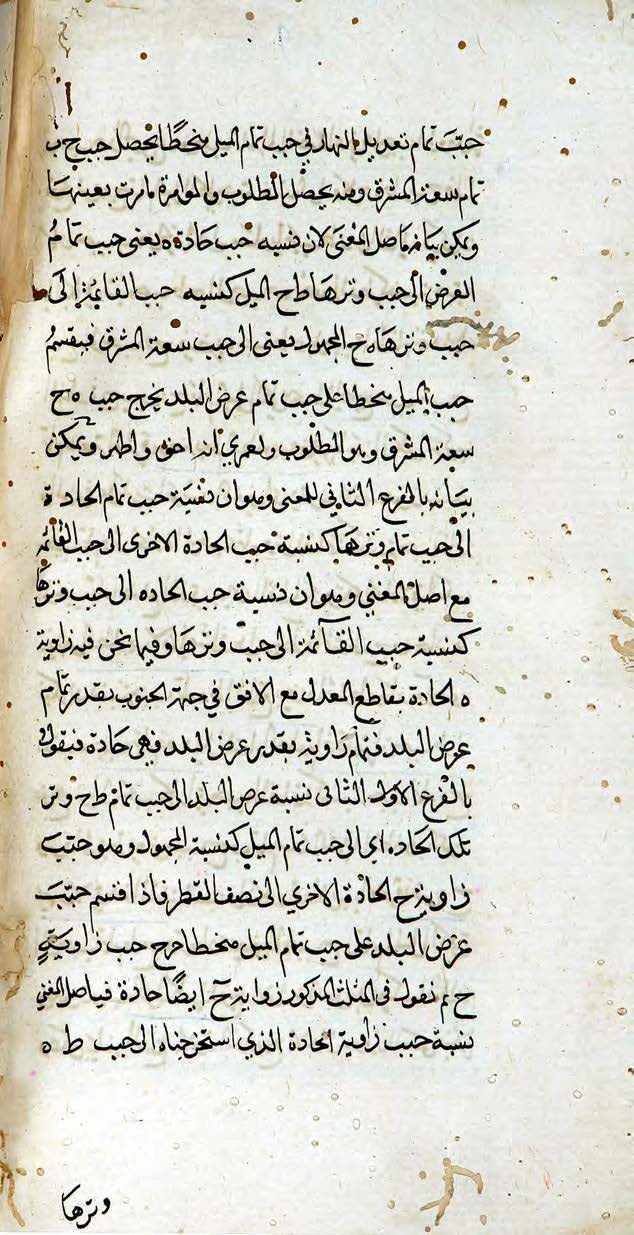 جيب تمام تعديل النهار في جيب تمام الميل منحطا يحصل جيب ح ب
تمام سعة المشرق ومنه يحصل المطلوب والموامرة مامرت بعينها
ويمكن بيانه باصل المغنى لان نسبه جيب حادة ه يعنى جيب تمام
العرض الى جيب وترها ط ح الميل كنسبه جيب القايمة الى
جيب وترها ه ح المجهول يعنى الى جيب سعة المشرق فيقسم
جيب الميل منحطا على جيب تمام عرض البلد يخرج جيب ه ح
سعة المشرق وهو المطلوب ولعمري انه اخف واظهر ويمكن
بيانه بالفرع الثاني للمغنى وهو ان نسبة جيب تمام الحادة
الى جيب تمام وترها كنسبة جيب الحادة الاخرى الى جيب القائمه
مع اصل المغنى وهو ان نسبة جيب الحاده الى جيب وترها
كنسبة جيب القآئمة الى جيب وترها وفيما نحن فيه زاوية
ه الحادة بقاطع المعدل مع الافق في جهة الجنوب بقدر تمام
عرض البلد فتمام زاوية بقدر عرض البلد فهى حادة فنقول
بالفرع الاول الثانى نسبة عرض البلد الى جيب تمام ط ح وتر
تلك الحاده اى الى جيب تمام الميل كنسبة المجهول وهو جيب
زاوية ح الحادة الاخري الى نصف القطر فاذا اقسم جيب
عرض البلد على جيب تمام الميل منحطا خرج جيب زاوية
ح ثم نقول فى المثلث المذكور زواية ح ايضًا حادة فباصل المغنى
نسبة جيب زاوية الحادة الذي استخرجناه الى جيب ط ه
وترها